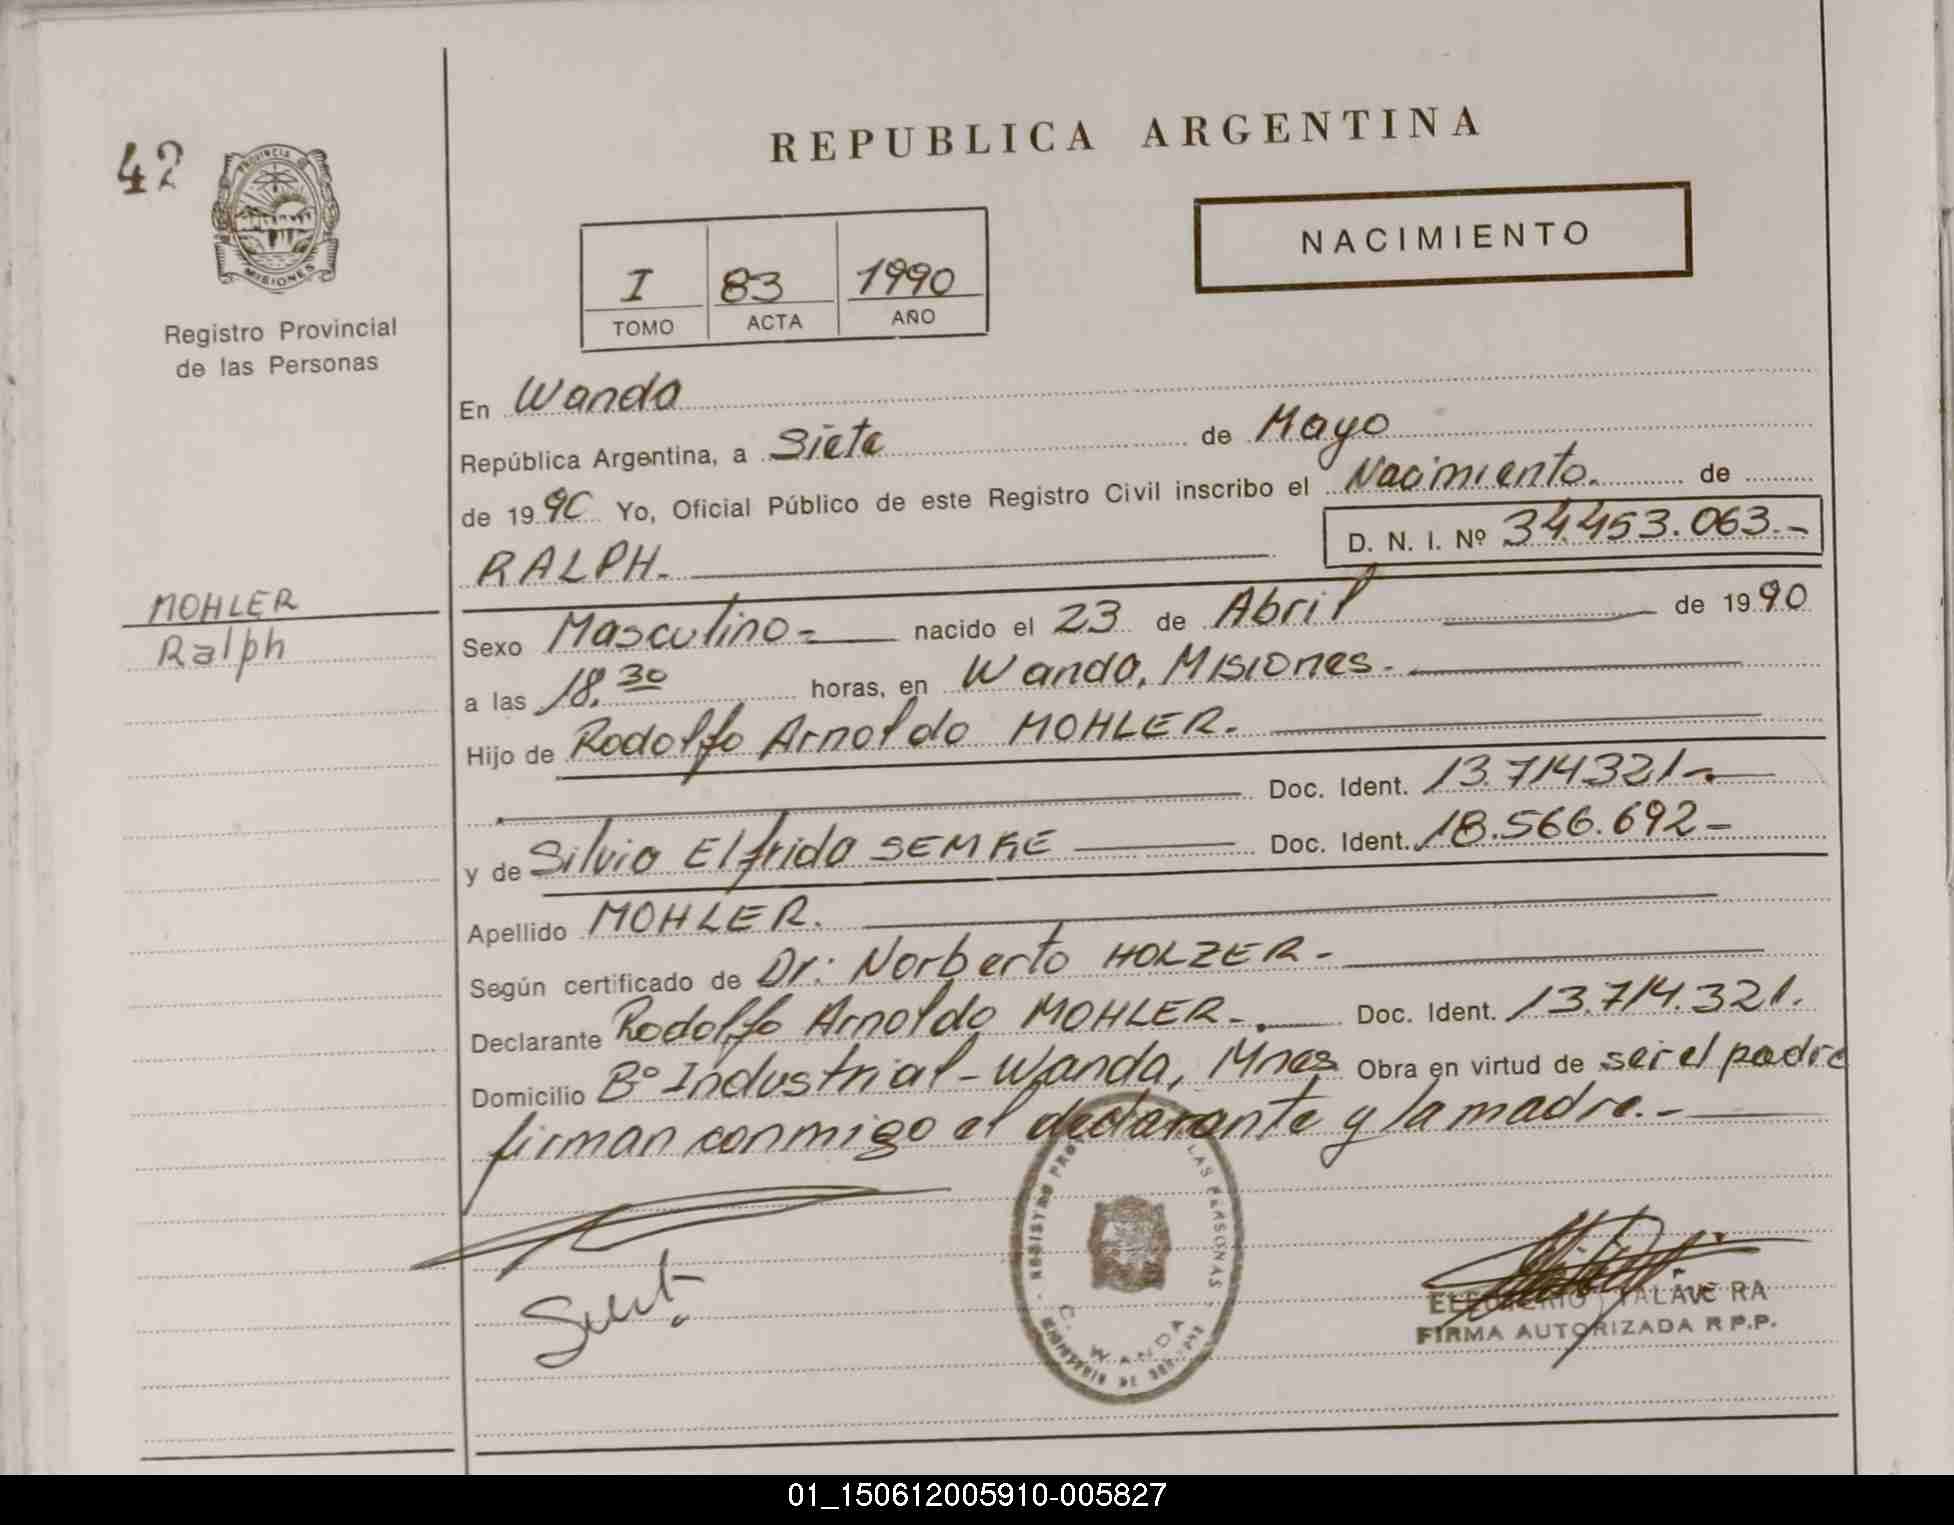 42
PROVINCIA DE
MISIONES
Registro Provincial
de las Personas
MOHLER
Ralph
REPUBLICA ARGENTINA
NACIMIENTO
I 83 1990
TOMO ACTA AÑO
En Wanda
República Argentina, a Siete de Mayo
de 1990 Yo, Oficial Público de este Registro Civil inscribo el Nacimiento. de
RALPH. D. N. I. Nº 34.453.063.-
Sexo Masculino - nacido el 23 de Abril de 1990
a las 18.30 horas, en Wanda, Misiones.-
Hijo de Rodolfo Arnoldo MOHLER.
Doc. Ident. 13.714.321-.
y de Silvia Elfrida SEMKE Doc. Ident. 18.566.692-
Apellido MOHLER.
Según certificado de Dr: Norberto HOLZER-
Declarante Rodolfo Arnoldo MOHLER-. Doc. Ident. 13.714.321.
Domicilio Bº Industrial-Wanda, Mnes Obra en virtud de ser el padre
firman conmigo el declarante y la madre.-
REGISTRO PRO LAS PERSONAS
C. WANDA
MINISTERIO DE
TALAVERA
FIRMA AUTORIZADA R.P.P.
01_150612005910-005827